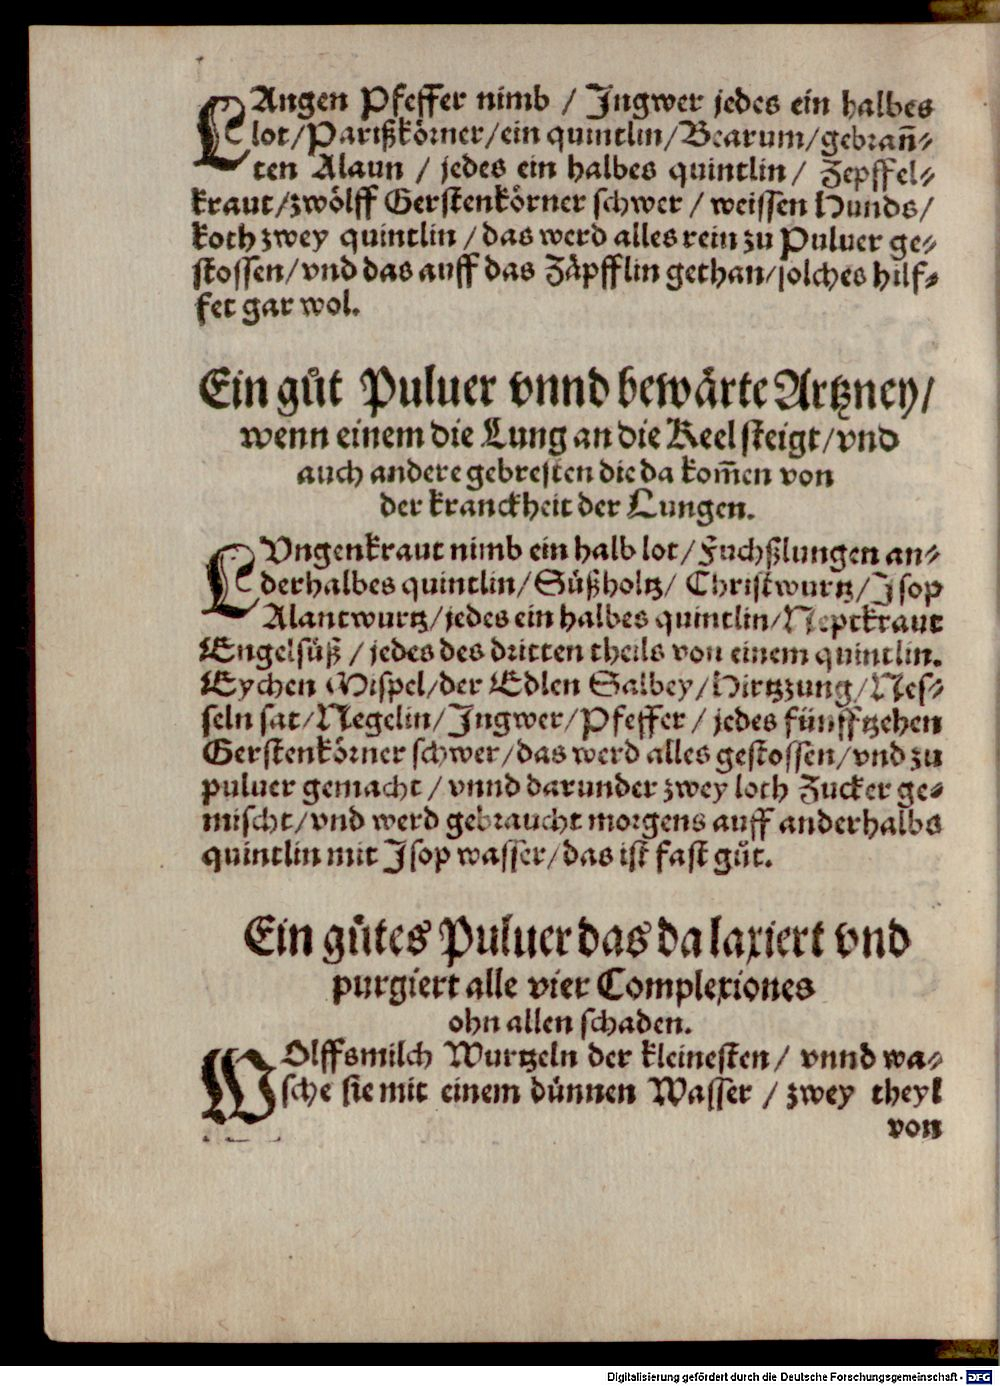 LAngen Pfeffer nimb / Jngwer jedes ein halbes
lot/Parißkörner/ein quintlin/Bearum/gebrañ⸗
ten Alaun / jedes ein halbes quintlin / Zepffel⸗
kraut/zwölff Gerstenkörner schwer / weissen Hunds/
koth zwey quintlin / das werd alles rein zu Puluer ge⸗
stossen/vnd das auff das Zäpfflin gethan/solches hilf⸗
fet gar wol.
Ein gůt Puluer vnnd bewärte Artzney/
wenn einem die Lung an die Keel steigt/vnd
auch andere gebresten die da kom̃en von
der kranckheit der Lungen.
LVngenkraut nimb ein halb lot/Fuchßlungen an⸗
derhalbes quintlin/Süßholtz/ Christwurtz/Jsop
Alantwurtz/jedes ein halbes quintlin/Neptkraut
Engelsüß / jedes des dritten theils von einem quintlin.
Eychen Mispel/der Edlen Salbey/Hirtzzung/Nes⸗
seln sat/Negelin/Jngwer/Pfeffer / jedes fünfftzehen
Gerstenkörner schwer/das werd alles gestossen/vnd zu
puluer gemacht / vnnd darunder zwey loth Zucker ge⸗
mischt/vnd werd gebraucht morgens auff anderhalbs
quintlin mit Jsop wasser/das ist fast gůt.
Ein gůtes Puluer das da laxiert vnd
purgiert alle vier Complexiones
ohn allen schaden.
WOlffsmilch Wurtzeln der kleinesten / vnnd wa⸗
sche sie mit einem dünnen Wasser / zwey theyl
von
Digitalisierung gefördert durch die Deutsche Forschungsgemeinschaft - DFG